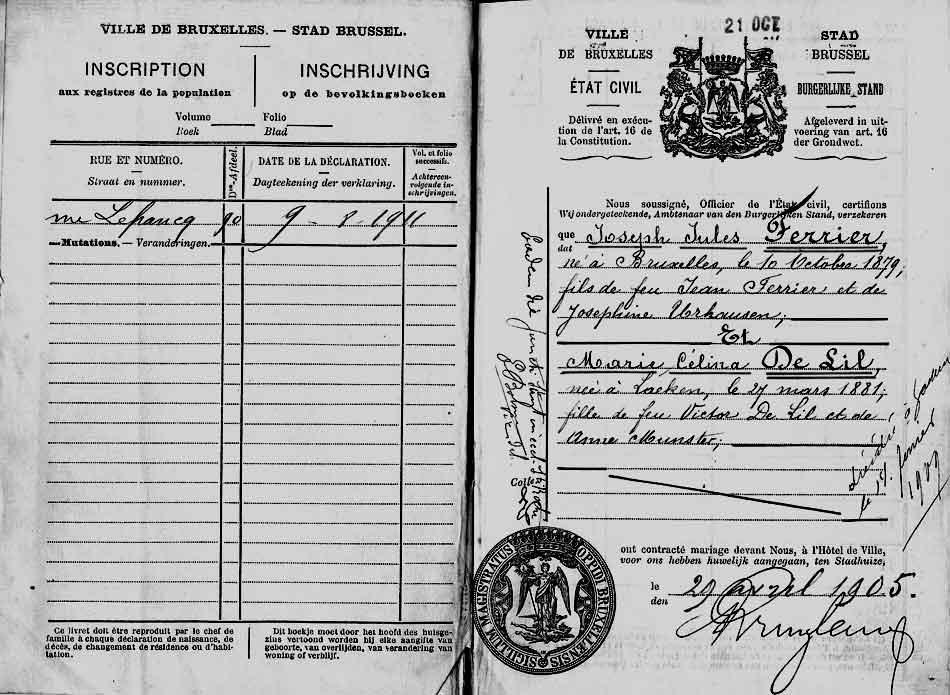 VILLE DE BRUXELLES. — STAD BRUSSEL.
INSCRIPTION
aux registres de la population
INSCHRIJVING
op de bevolkingsboeken
Volume Folio
Boek Blad
RUE ET NUMÉRO.
Straat en nummer.
Don-Afdeel.
DATE DE LA DÉCLARATION.
Dagteekening der verklaring.
Vol. et folio
successifs.
Achtereen-
volgende in-
schrijvingen.
90 9 - 8 - 1911
— Mutations. — Veranderingen.
Ce livret doit être reproduit par le chef de
famille à chaque déclaration de naissance, de
décès, de changement de résidence ou d'habi-
tation.
Dit boekje moet door het hoofd des huisge-
zins vertoond worden bij elke aangifte van
geboorte, van overlijden, van verandering van
woning of verblijf.
21 OCT
VILLE
DE BRUXELLES
ÉTAT CIVIL
Délivré en exécu-
tion de l'art. 16 de
la Constitution.
STAD
BRUSSEL
BURGERLIJKE STAND
Afgeleverd in uit-
voering van art. 16
der Grondwet.
Nous soussigné, Officier de l'État civil, certifions
Wij ondergeteekende, Ambtenaar van den Burgerlijken Stand, verzekeren
que
dat
Joseph Jules Ferrier,
né à Bruxelles, le 10 Octobre 1879,
fils de feu Jean Ferrier et de
Josephine Urhausen;
Et
Marie Célina De Lil,
née à Laeken, le 27 mars 1881;
fille de feu Victor De Lil et de
Anne Munster;
1909
ont contracté mariage devant Nous, à l'Hôtel de Ville,
voor ons hebben huwelijk aangegaan, ten Stadhuize,
le
den
29 avril 1905.
SIGILLUM MAGISTRATUS OPPIDI BRUXELLENSIS